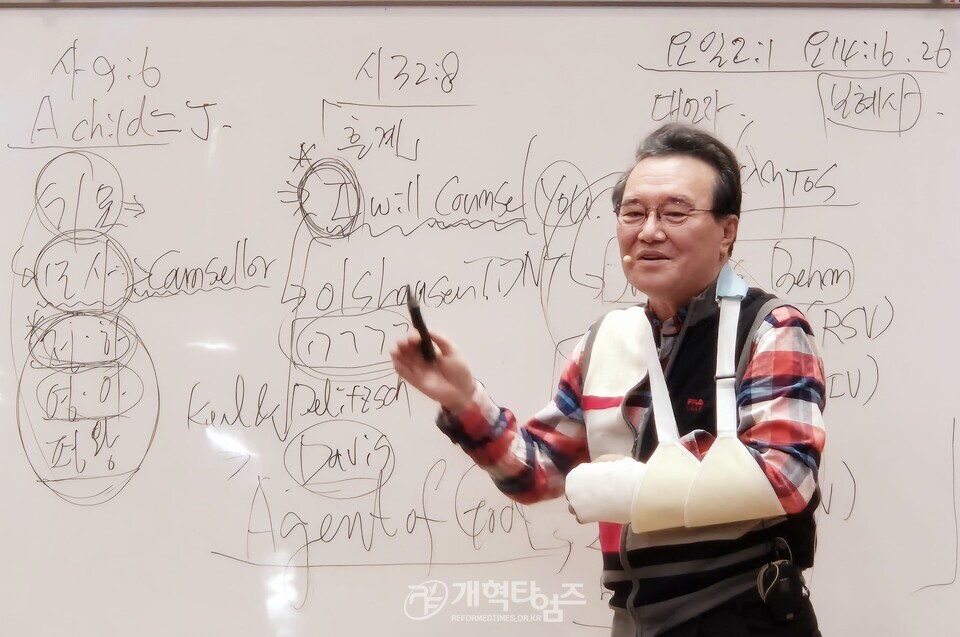 사9:6
A child = J.
기묘
모사 Counsellor
전.하
영.아
평왕
시32:8
훈계
I will Counsel You.
Olshausen TDNT
Keil & Delitzsch
Davis
Agent of God
요일2:1 요14:16.26
대언자. 보혜사.
Behm
RSV)
IV)
FILA
개혁타임즈
REFORMEDTIMES.OR.KR